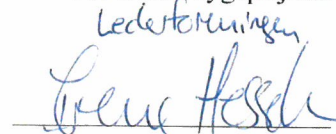 Lederforeningen
Irene Hessel